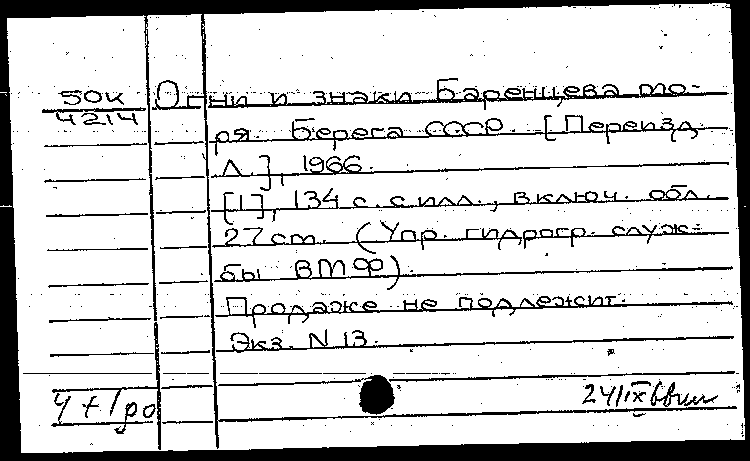 50К Огни и знаки Баренцева мо-
4214 ря. Берега СССР. [Переизд.
Л.], 1966.
[1], 134 с. с илл., включ. обл.
27 cm. (Упр. гидрогр. служ-
бы ВМФ).
Продаже не подлежит.
Экз. N 13.
4 + 1 ро 24/IX